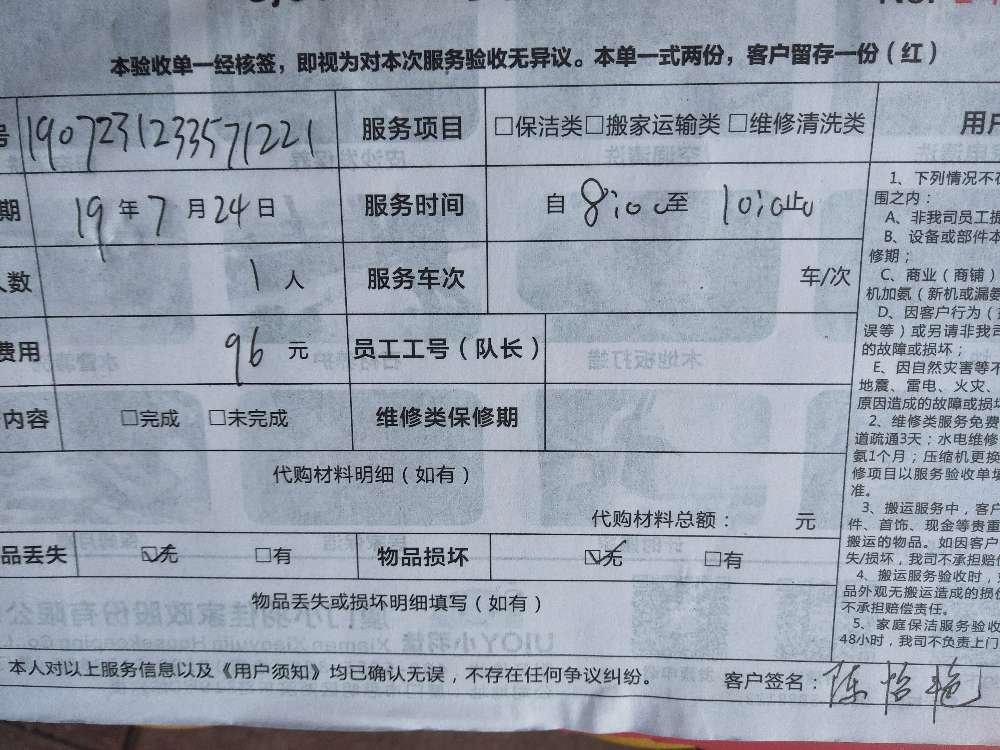 本验收单一经核签，即视为对本次服务验收无异议。本单一式两份，客户留存一份（红）
号 1907231233571221 服务项目 □保洁类□搬家运输类 □维修清洗类 用户
期 19年7月24日 服务时间 自8:00至10:00止
人数 1人 服务车次 车/次
费用 96元 员工工号（队长）
内容 □完成 □未完成 维修类保修期
代购材料明细（如有）
代购材料总额： 元
品丢失 ☑无 □有 物品损坏 ☑无 □有
物品丢失或损坏明细填写（如有）
本人对以上服务信息以及《用户须知》均已确认无误，不存在任何争议纠纷。 客户签名：陈怡艳
1、下列情况不在
围之内：
A、非我司员工提
B、设备或部件本
修期；
C、商业（商铺）
机加氨（新机或漏氨
D、因客户行为（
误等）或另请非我司
的故障或损坏；
E、因自然灾害等不
地震、雷电、火灾、
原因造成的故障或损坏
2、维修类服务免费
道疏通3天；水电维修
氨1个月；压缩机更换
修项目以服务验收单填
准。
3、搬运服务中，客户
件、首饰、现金等贵重
搬运的物品。如因客户
失/损坏，我司不承担赔偿
4、搬运服务验收时，
品外观无搬运造成的损伤
不承担赔偿责任。
5、家庭保洁服务验收
48小时，我司不负责上门